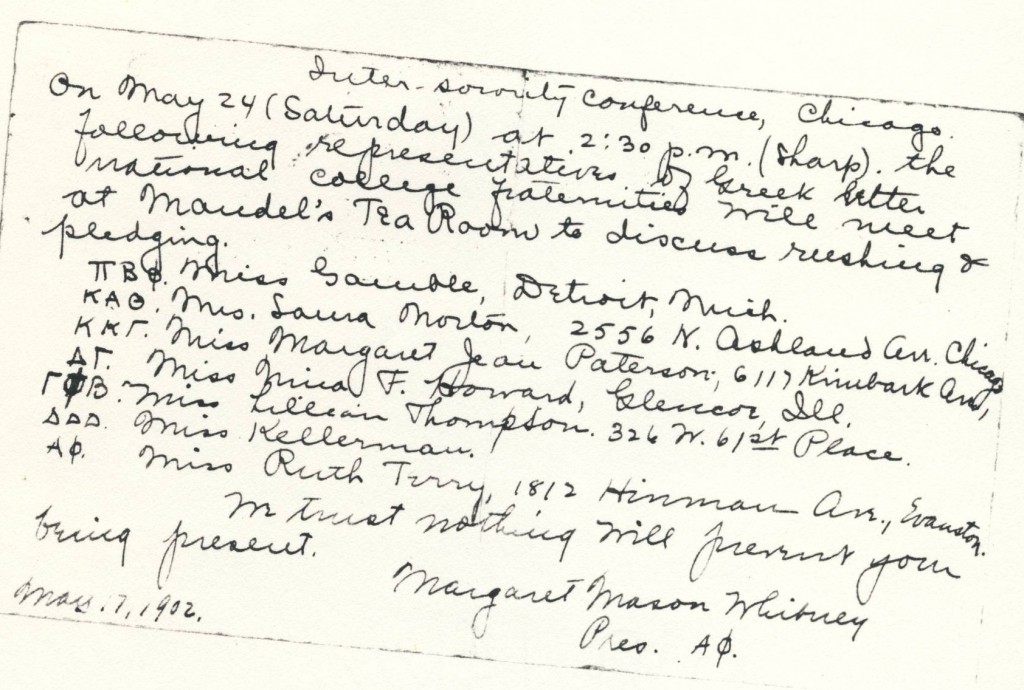 Inter-sorority Conference, Chicago.
On May 24 (Saturday) at 2:30 p.m. (sharp). the
following representatives of Greek letter
national college fraternities will meet
at Mandel's Tea Room to discuss rushing &
pledging.
ΠΒΦ. Miss Gamble, Detroit, Mich.
ΚΑΘ. Mrs. Laura Norton, 2556 N. Ashland Av. Chicago
ΚΚΓ. Miss Margaret Jean Paterson, 6117 Kimbark Av.,
ΔΓ. Miss Nina F. Howard, Glencoe, Ill.
ΓΦΒ. Miss Lillian Thompson. 326 W. 61st Place.
ΔΔΔ. Miss Kellerman.
ΑΦ. Miss Ruth Terry, 1812 Hinman Ave., Evanston.
We trust nothing will prevent your
being present.
Margaret Mason Whitney
Pres. ΑΦ.
May 17, 1902.